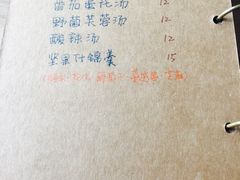 番茄蛋花汤 12
野菌芙蓉汤 12
酸辣汤 12
坚果什锦羹 15